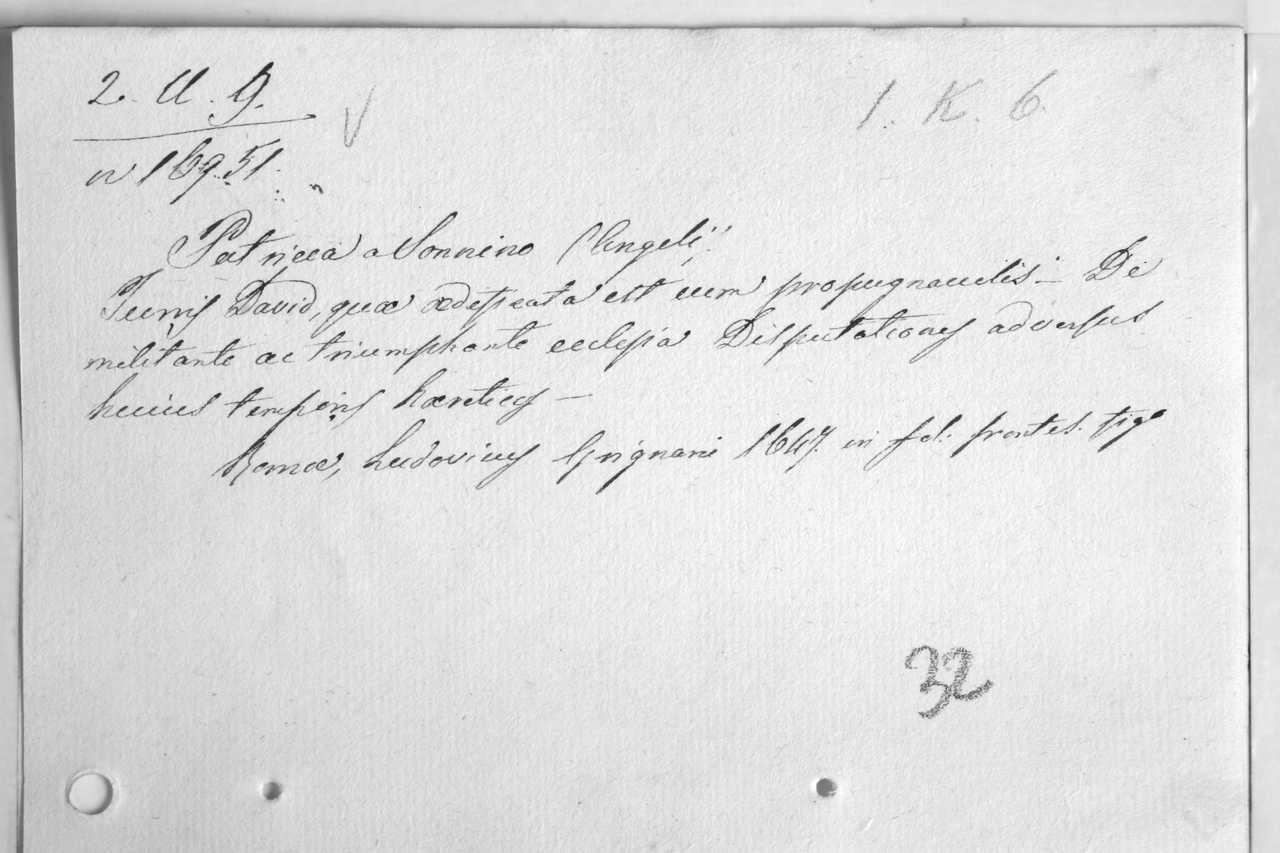 2. U. 9.
1. K. 6.
n 16951.
Patricca a Sonnino (Angeli)
Turris David, quæ ædificata est cum propugnaculis - De
militante ac triumphante ecclesia Disputationes adversus
huius temporis hæreticos -
Romæ, Ludovicus Grignani 1647. in fol: frontes. fig.
32